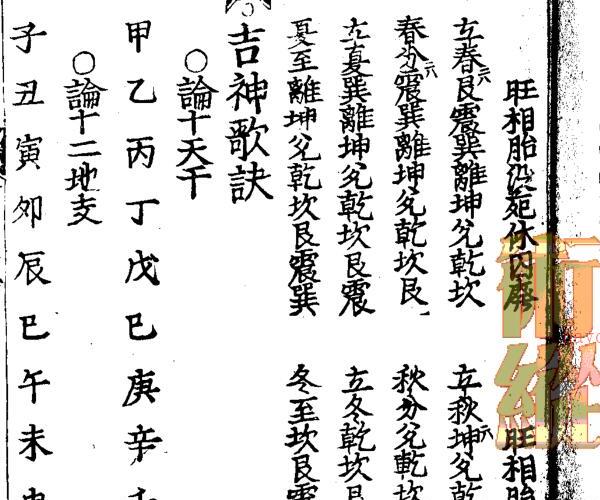 旺相胎没死休囚廢 旺相胎
立春艮震巽離坤兌乾坎 立秋坤兌乾
春分震巽離坤兌乾坎艮 秋分兌乾坎
立夏巽離坤兌乾坎艮震 立冬乾坎艮
夏至離坤兌乾坎艮震巽 冬至坎艮震
吉神歌訣
○論十天干
甲乙丙丁戊巳庚辛
○論十二地支
子丑寅卯辰巳午未
術經